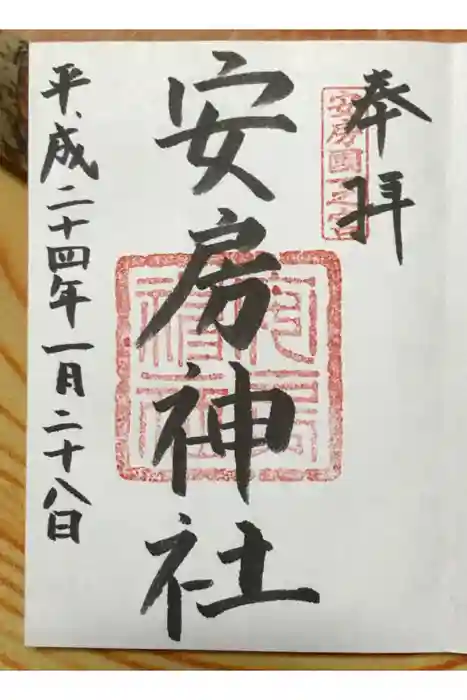 奉拝
安房國一之宮
安房神社
平成二十四年一月二十八日